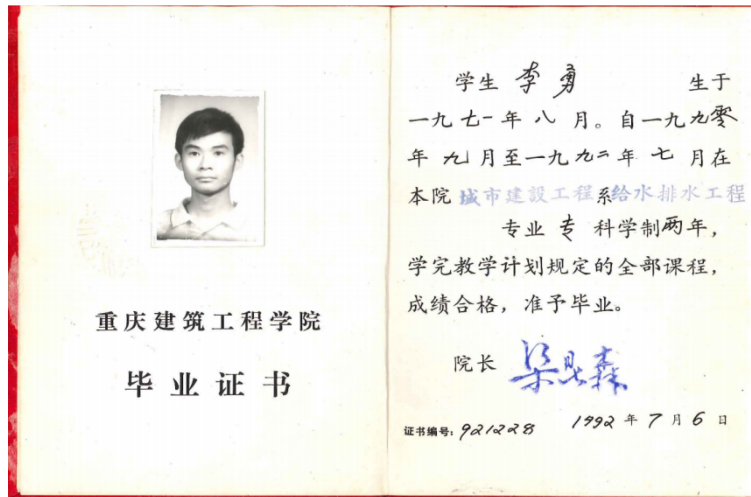 重庆建筑工程学院
毕业证书
学生 李勇 生于
一九七一年八月。自一九九零
年九月至一九九二年七月在
本院 城市建設工程系给水排水工程
专业 专 科学制两年，
学完教学计划规定的全部课程，
成绩合格，准予毕业。
院长
证书编号：921228 1992年7月6日